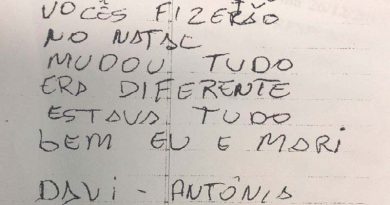 VOCÊS FIZERÃO
NO NATAL
MUDOU TUDO
ERA DIFERENTE
ESTAVA TUDO
bEM EU E MARI
DAVI - ANTÔNIA